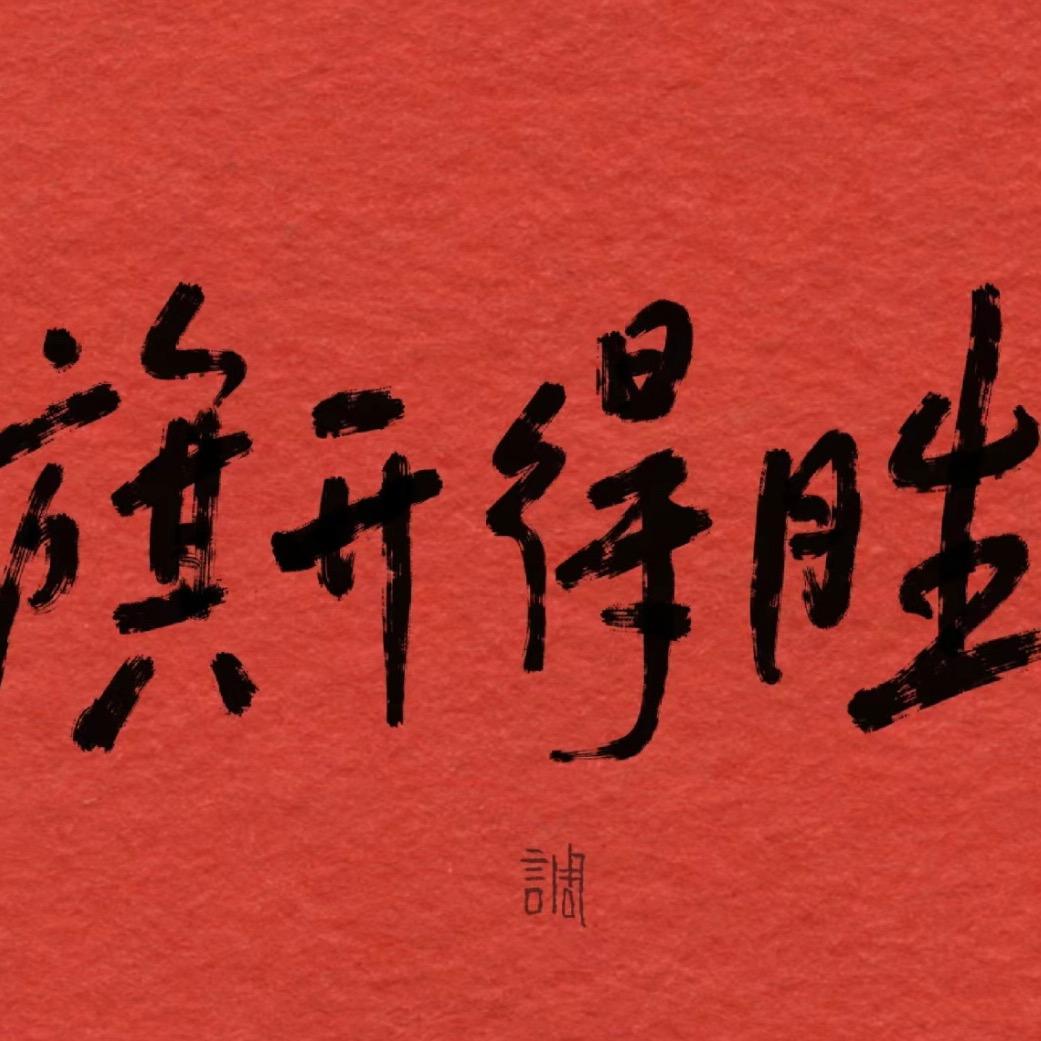 旗开得胜
調